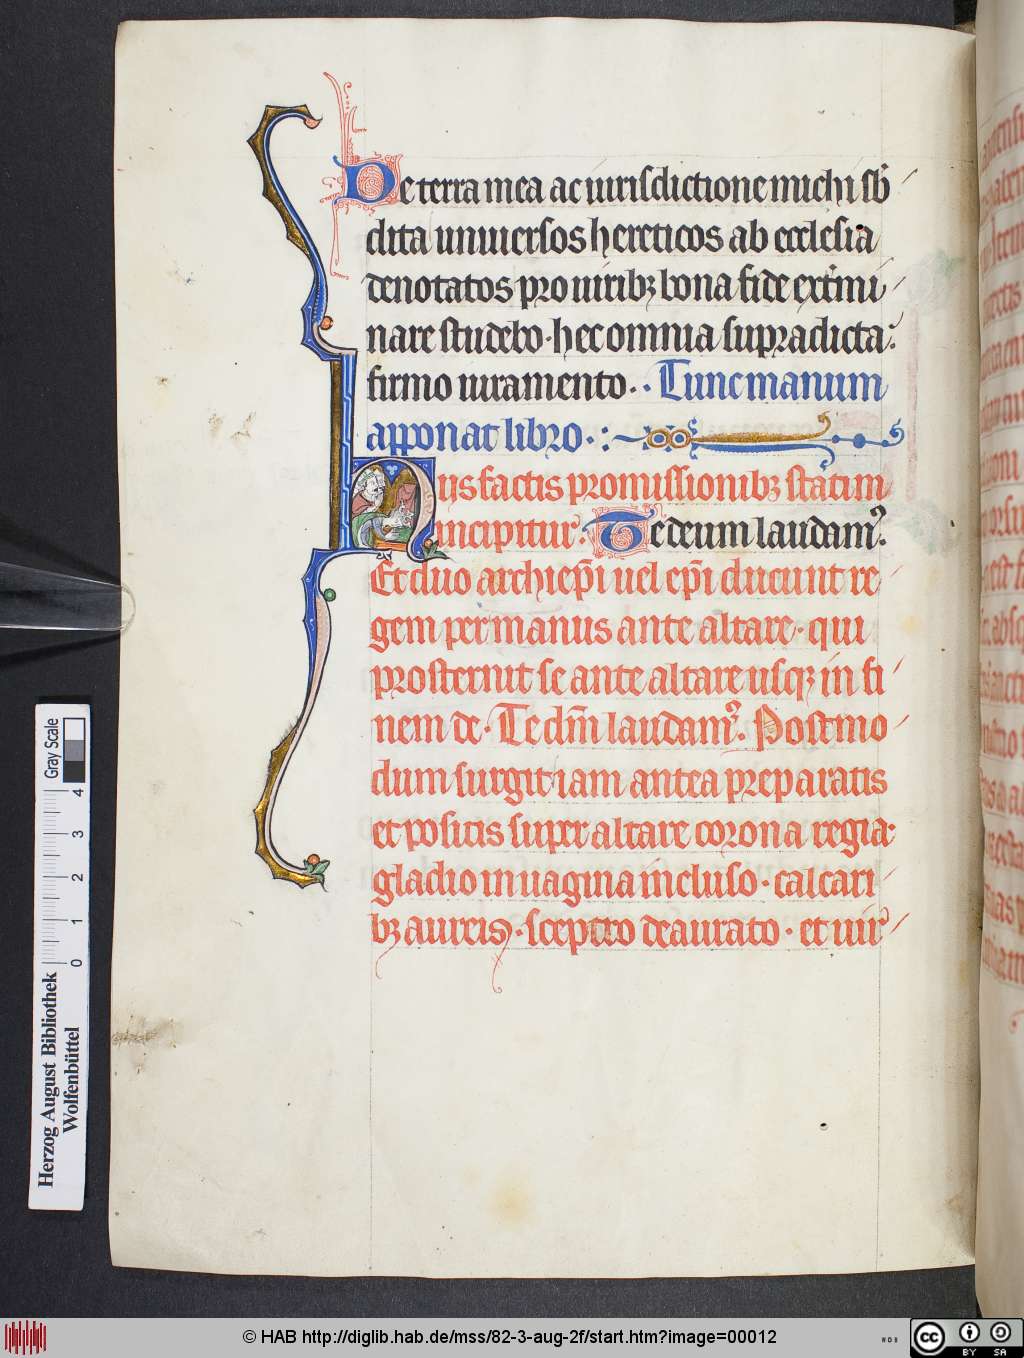 De terra mea ac iurisdictione michi sb̄
dita uniuersos hereticos ab ecclesia
denotatos pro uiribꝫ bona fideext̄mi
nare studebo· hec omnia supradicta
firmo iuramento·· Tunc manum
apponat libro·:
Hijs factis promissionibꝫ statim
incipitur· Te deum laudamꝰ·
Et duo archiep̄i uel ep̄i ducunt re
gem per manus ante altare· qui
prosternit se ante altare usqꝫ in fi
nem de· Te dm̄ laudamꝰ· Postmo
dum surgit iam antea preparatis
et positis super altare corona regia·
gladio in uagina incluso· calcari
bꝫ aureis· sceptro deaurato· et uir
Herzog August Bibliothek
Wolfenbüttel
0 1 2 3 4
Gray Scale
© HAB http://diglib.hab.de/mss/82-3-aug-2f/start.htm?image=00012
cc BY SA